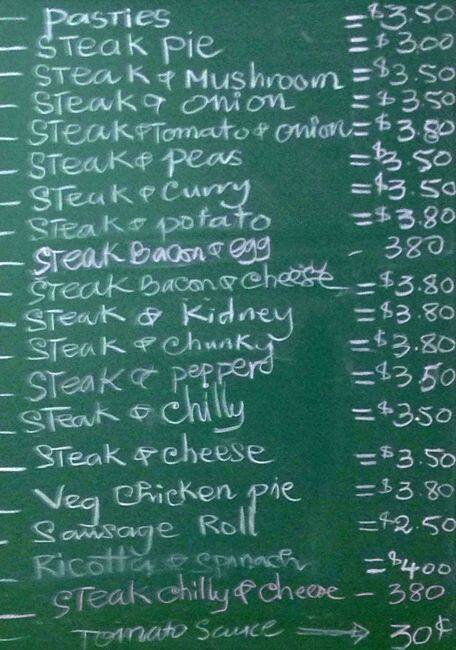 — Pasties = $3.50
— Steak Pie = $3.00
— Steak & Mushroom = $3.50
— Steak & onion = $3.50
— Steak & Tomato & onion = $3.80
— Steak & peas = $3.50
— Steak & Curry = $3.50
— Steak & potato = $3.80
— Steak Bacon & egg - 380
— Steak Bacon & cheese = $3.80
— Steak & Kidney = $3.80
— Steak & Chunky = $3.80
— Steak & pepperd = $3.50
— Steak & chilly = $3.50
— Steak & cheese = $3.50
— Veg Chicken pie = $3.80
— Sausage Roll = $2.50
— Ricotta & spinach = $400
— Steak chilly & cheese - 380
— Tomato sauce → 30¢